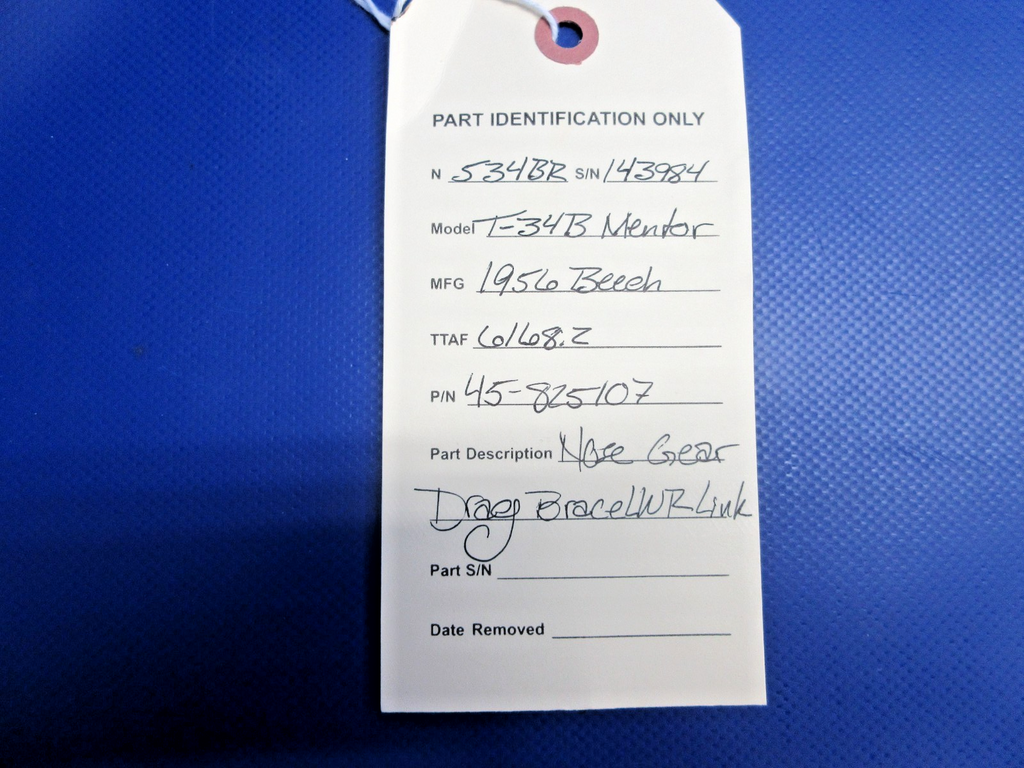 PART IDENTIFICATION ONLY
N 534BR S/N 143984
Model T-34B Mentor
MFG 1956 Beech
TTAF 6168.2
P/N 45-825107
Part Description Nose Gear
Drag Brace LWR Link
Part S/N
Date Removed